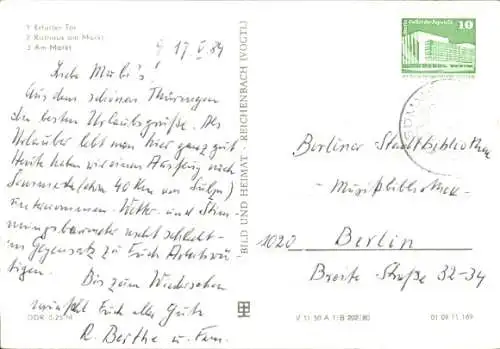 1 Erfurter Tor
2 Rathaus am Markt
3 Am Markt
17. V. 84
Liebe Musbi's,
Aus dem schönen Thüringen
die besten Urlaubsgrüße. Als
Urlauber lebt man hier ganz gut
Heute haben wir einen Ausflug nach
Sömmerda (ehm 40 Km von Sulza)
unternommen. Wetter- und Stim-
mungsbarometer nicht schlecht-
im Gegensatz zu Euch Arbeitswü-
tigen. Bis zum Wiedersehen
wünscht Euch alles Gute
R. Berthe u. Fam.
DDR 0,25 M
BILD UND HEIMAT · REICHENBACH (VOGTL)
10
Berliner Stadtbibliothek
- Musikbibliothek -
1020 Berlin
Breite-Straße 32-34
V 11 50 A 1/B 202/80
01 09 11 169